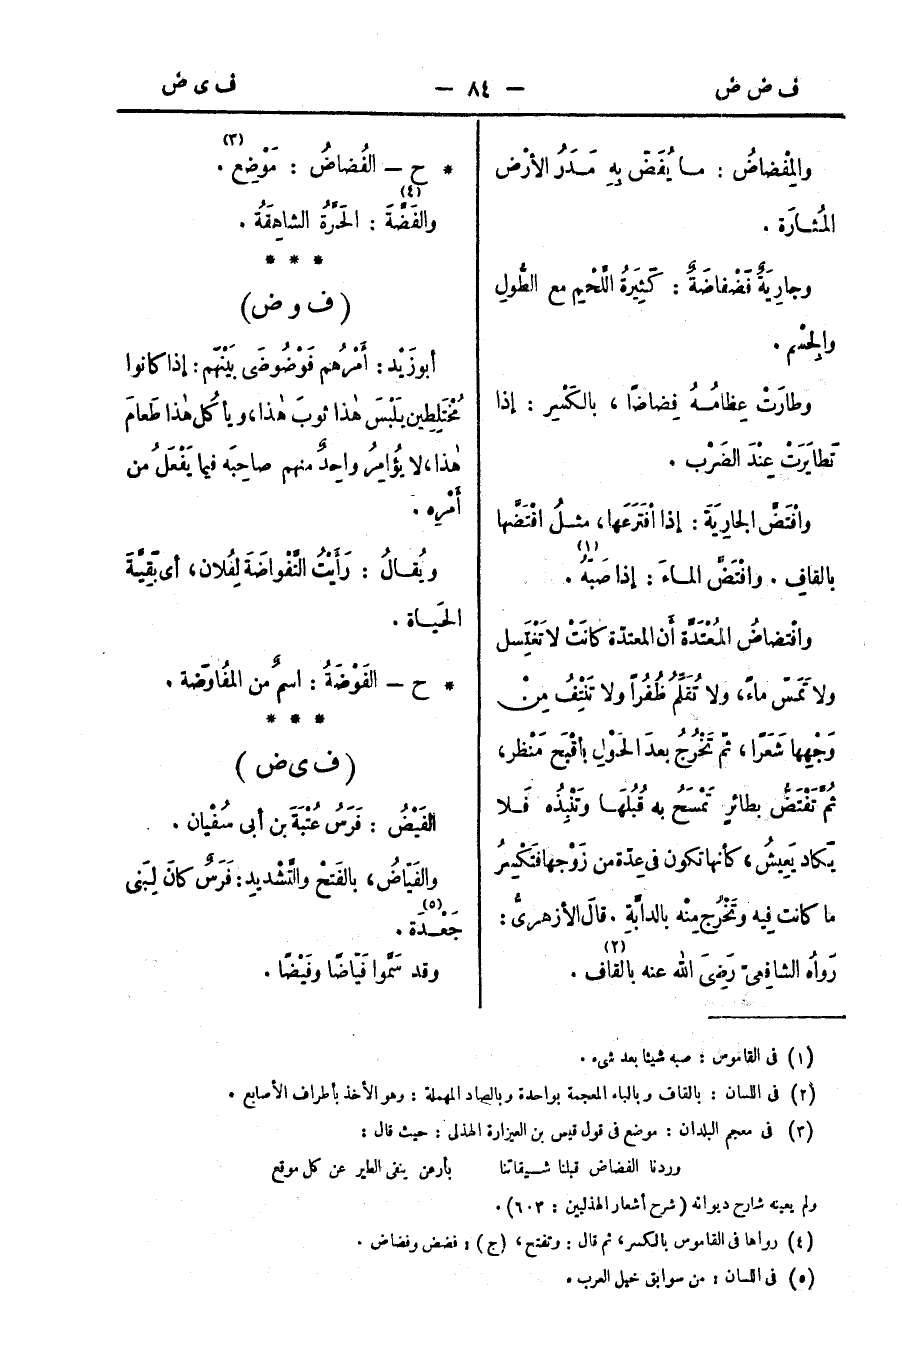 ف ض ض
— ٨٤ —
ف ى ض
والمِفْضاضُ : ما يُفَضّ بِهِ مَدَرُ الأرْض
المُثارَة .
وجارِيَةٌ فَضْفاضَةٌ : كَثِيرَةُ اللَّحْمِ مع الطُّولِ
والجِسْم .
وطارَتْ عِظامُـهُ فِضاضًا ، بالكَسْرِ : إذا
تَطايَرَتْ عِنْدَ الضَرْبِ .
وافْتَضَّ الجارِيَةَ : إذا افْتَرَعَها ، مثـلُ اقْتَضَّها
بالقافِ . وافْتَضَّ المـاءَ : إذا صَبَّهُ (١) .
وافْتِضاضُ المُعْتَدَّةِ أَن المعتدّة كانَتْ لا تَغْتَسِل
ولا تَمَسّ ماءً ، ولا تُقَلِّمُ ظُفُراً ولا تَنْتِفُ مِنْ
وَجْهِها شَعَرًا ، ثمّ تَخْرُجُ بعدَ الحَوْلِ بأَقْبَحِ مَنْظرٍ ،
ثُمَّ تَفْتَضُّ بطائرٍ تَمْسَحُ به قُبُلَهـا وتَنْبِذُه فَـلا
يَكاد يَعِيشُ ، كأنها تكون فى عِدّة من زَوْجها فَتَكْسِرُ
ما كانت فيه وتَخْرُج مِنْه بالدابَّةِ . قالَ الأزهرىُّ :
رَواه الشافِعىّ رَضِىَ الله عنه بالقاف (٢) .
* ح — الفُضاضُ : مَوْضِع (٣) .
والفَضَّةُ (٤) : الحَرَّةُ الشاهِقَةُ .
* * *
( ف و ض )
أبوزَيْد : أَمْرُهم فَوْضُوضَى بَيْنَهم : إذا كانوا
مُخْتَلِطِين يَلْبَسَ هٰذا ثوبَ هٰذا ، ويأكُل هٰذا طَعامَ
هٰذا ، لا يُؤامِرُ واحِدٌ منهم صاحِبَه فيما يَفْعَلُ من
أَمْرِه .
ويُقـالُ : رَأَيْتُ النَّفْواضَةَ لِفُلان ، أى بَقِيَّةَ
الحَيـاة .
* ح — الفَوْضَةُ : اسمٌ من المُفاوَضة .
* * *
( ف ى ض )
الفَيْضُ : فَرَسُ عُتْبَةَ بن أبى سُفْيان .
والفَيّاضُ ، بالفَتْح والتَّشْديد : فَرَسٌ كانَ لِبَنى
جَعْـدَة (٥) .
وقد سَمَّوا فَيّاضًا وفَيْضًا .
(١) فى القاموس : صبه شيئا بعد شىء .
(٢) فى اللسان : بالقاف وبالباء المعجمة بواحدة وبالصاد المهملة : وهو الأخذ بأطراف الأصابع .
(٣) فى معجم البلدان : موضع فى قول قيس بن العيزارة الهذلى : حيث قال :
وردنا الفضاض قبلنا شـيفاتنا    بأرعن ينفى الطير عن كل موقع
ولم يعينه شارح ديوانه ( شرح أشعار الهذليين : ٦٠٣ ) .
(٤) رواها فى القاموس بالكسر ، ثم قال : وتفتح ، (ج) : فضض وفضاض .
(٥) فى اللسان : من سوابق خيل العرب .